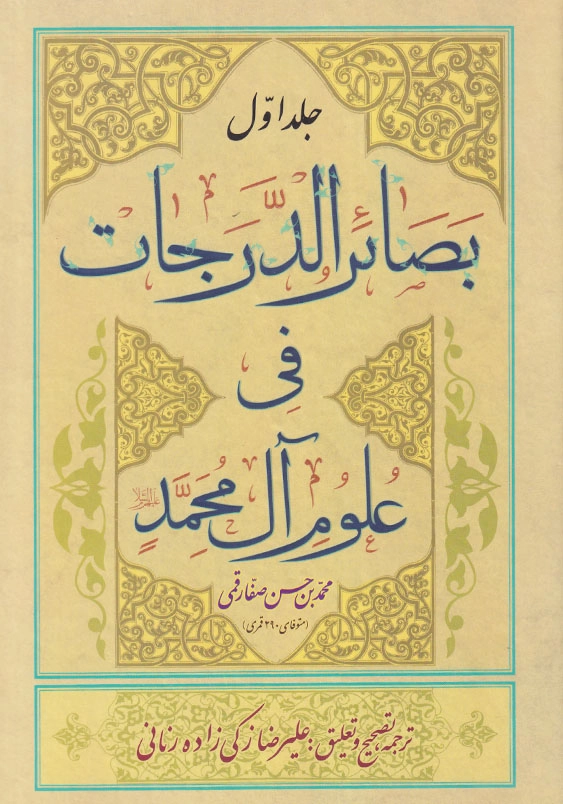 جلد اوّل
بَصَائِرُ الدَّرَجات
فی
عُلُومِ آلِ مُحَمَّدٍ علیهم السلام
محمّد بن حسن صفّار قمی
(متوفای ۲۹۰ قمری)
ترجمه، تصحیح و تعلیق: علیرضا زکی زاده رنانی